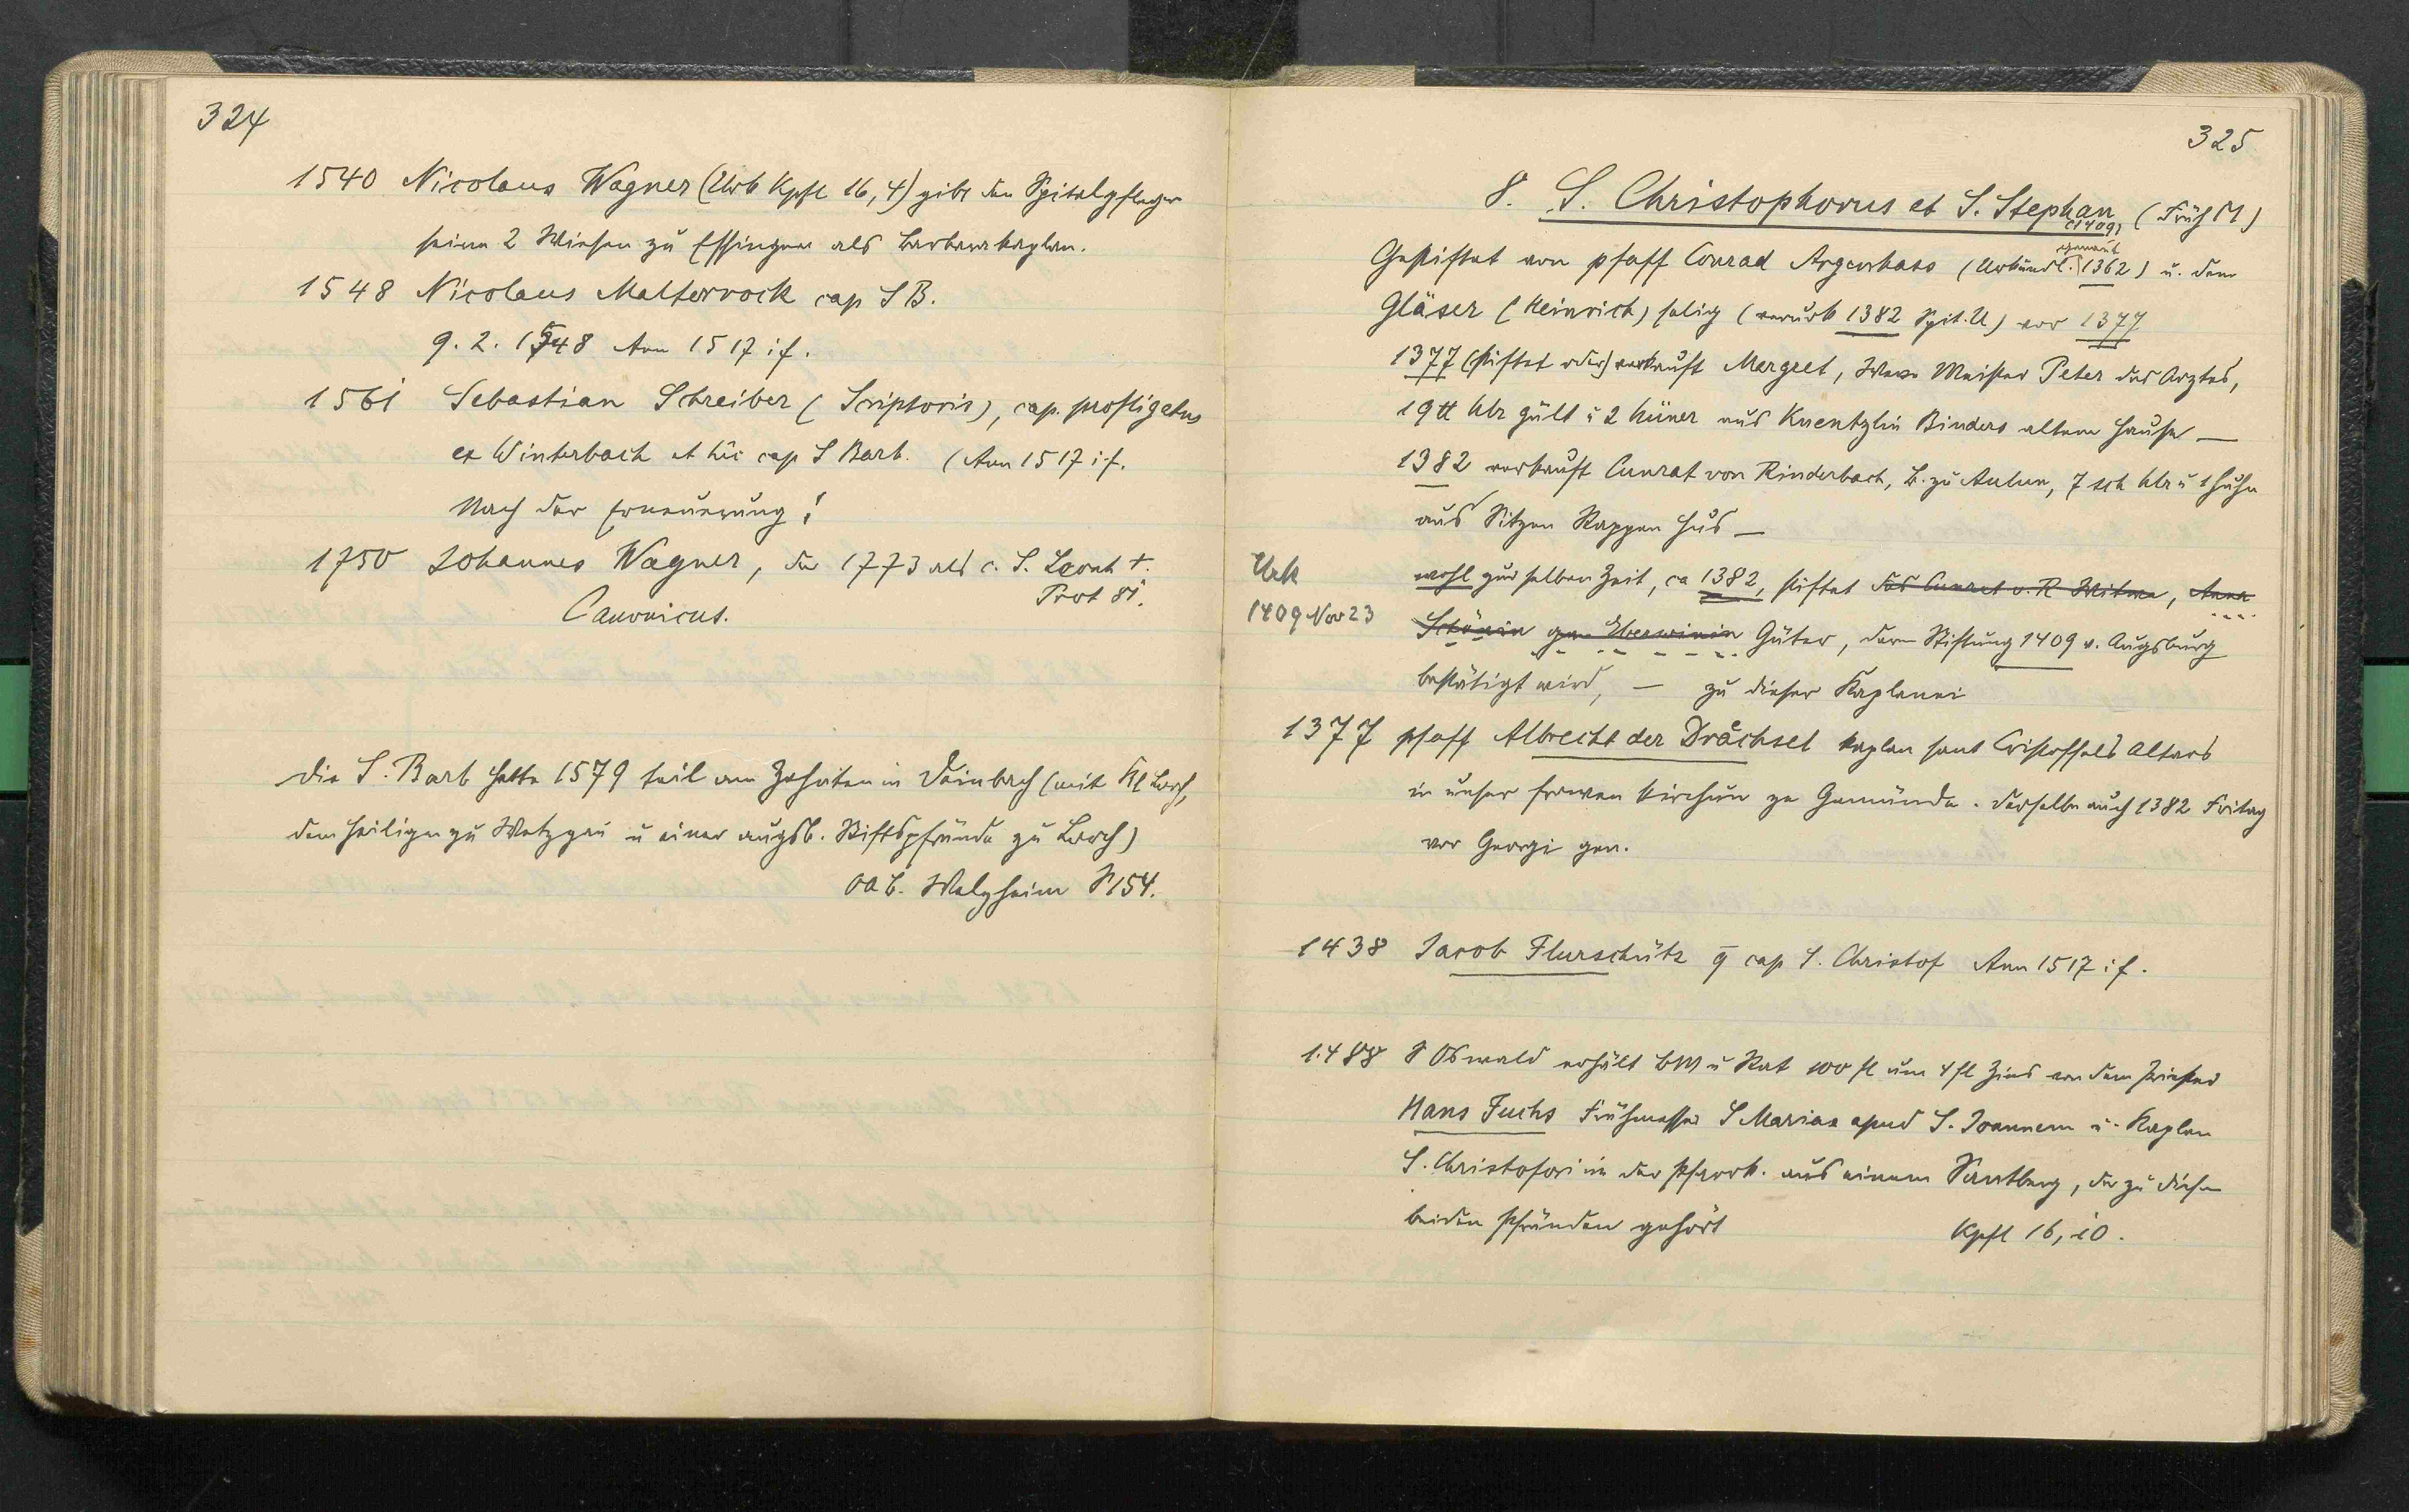 324
1540 Nicolaus Wagner (Urb Kpfl 16,4) gibt den Spitalpfleger
seine 2 Wiesen zu Essingen als Barbarakaplan.
1548 Nicolaus Malterrock cap S B.
9. 2. 1548 Ann 1517 i f.
1561 Sebastian Schreiber (Scriptoris), cap. profligatus
ex Winterbach et hic cap S Barb. (Ann 1517 i f.
Nach der Erneuerung!
1750 Johannes Wagner, der 1773 als c. S. Leonh +.
Canonicus. Prot 81.
die S. Barb hatte 1579 teil am Zehnten in Deinbach (mit Kl Lorch,
dem Heiligen zu Wetzgau u einer augsb. Stiftspfründe zu Lorch)
OAB. Welzheim S 154.
325
8. S. Christophorus et S. Stephan (Früh M)
(1409)
Gestiftet von pfaff Conrad Argenhass (Urkundl. genannt 1362) u. dem
Gläser (Heinrich) selig (verurk 1382 Spit. U) vor 1377
1377 (stiftet oder) verkauft Mergret, Wwe Meister Peter des Arztes,
19 lb hlr gült u 2 hüner aus Kuentzlin Binders altem Hause —
1382 verkauft Cunrat von Rinderbach, B. zu Aulun, 7 sch hlr u 1 Huhn
aus Sitzen Rappen Hus —
Urk
1409 Nov 23
wohl zur selben Zeit, ca 1382, stiftet des Cunrat v. R Witwe, Anna
Schönin gen Eberwinin Güter, deren Stiftung 1409 v. Augsburg
bestätigt wird, — zu dieser Kaplanei
1377 pfaff Albrecht der Drächsel kaplan sant Cristoffels Altars
in unser frowen kirchun ze Gemünde. derselbe auch 1382 Fritag
vor Georgi gen.
1438 Jacob Flurschütz q cap S. Christof Ann 1517 i f.
1488 S Oswald erhält BM u Rat 100 fl um 4 fl Zins von dem Priester
Hans Fuchs Frühmesser S Mariae apud S. Joannem u. Kaplan
S. Christofori in der Pfarrk. aus einem Santberg, der zu diesen
beiden Pfründen gehört Kpfl 16, 10.